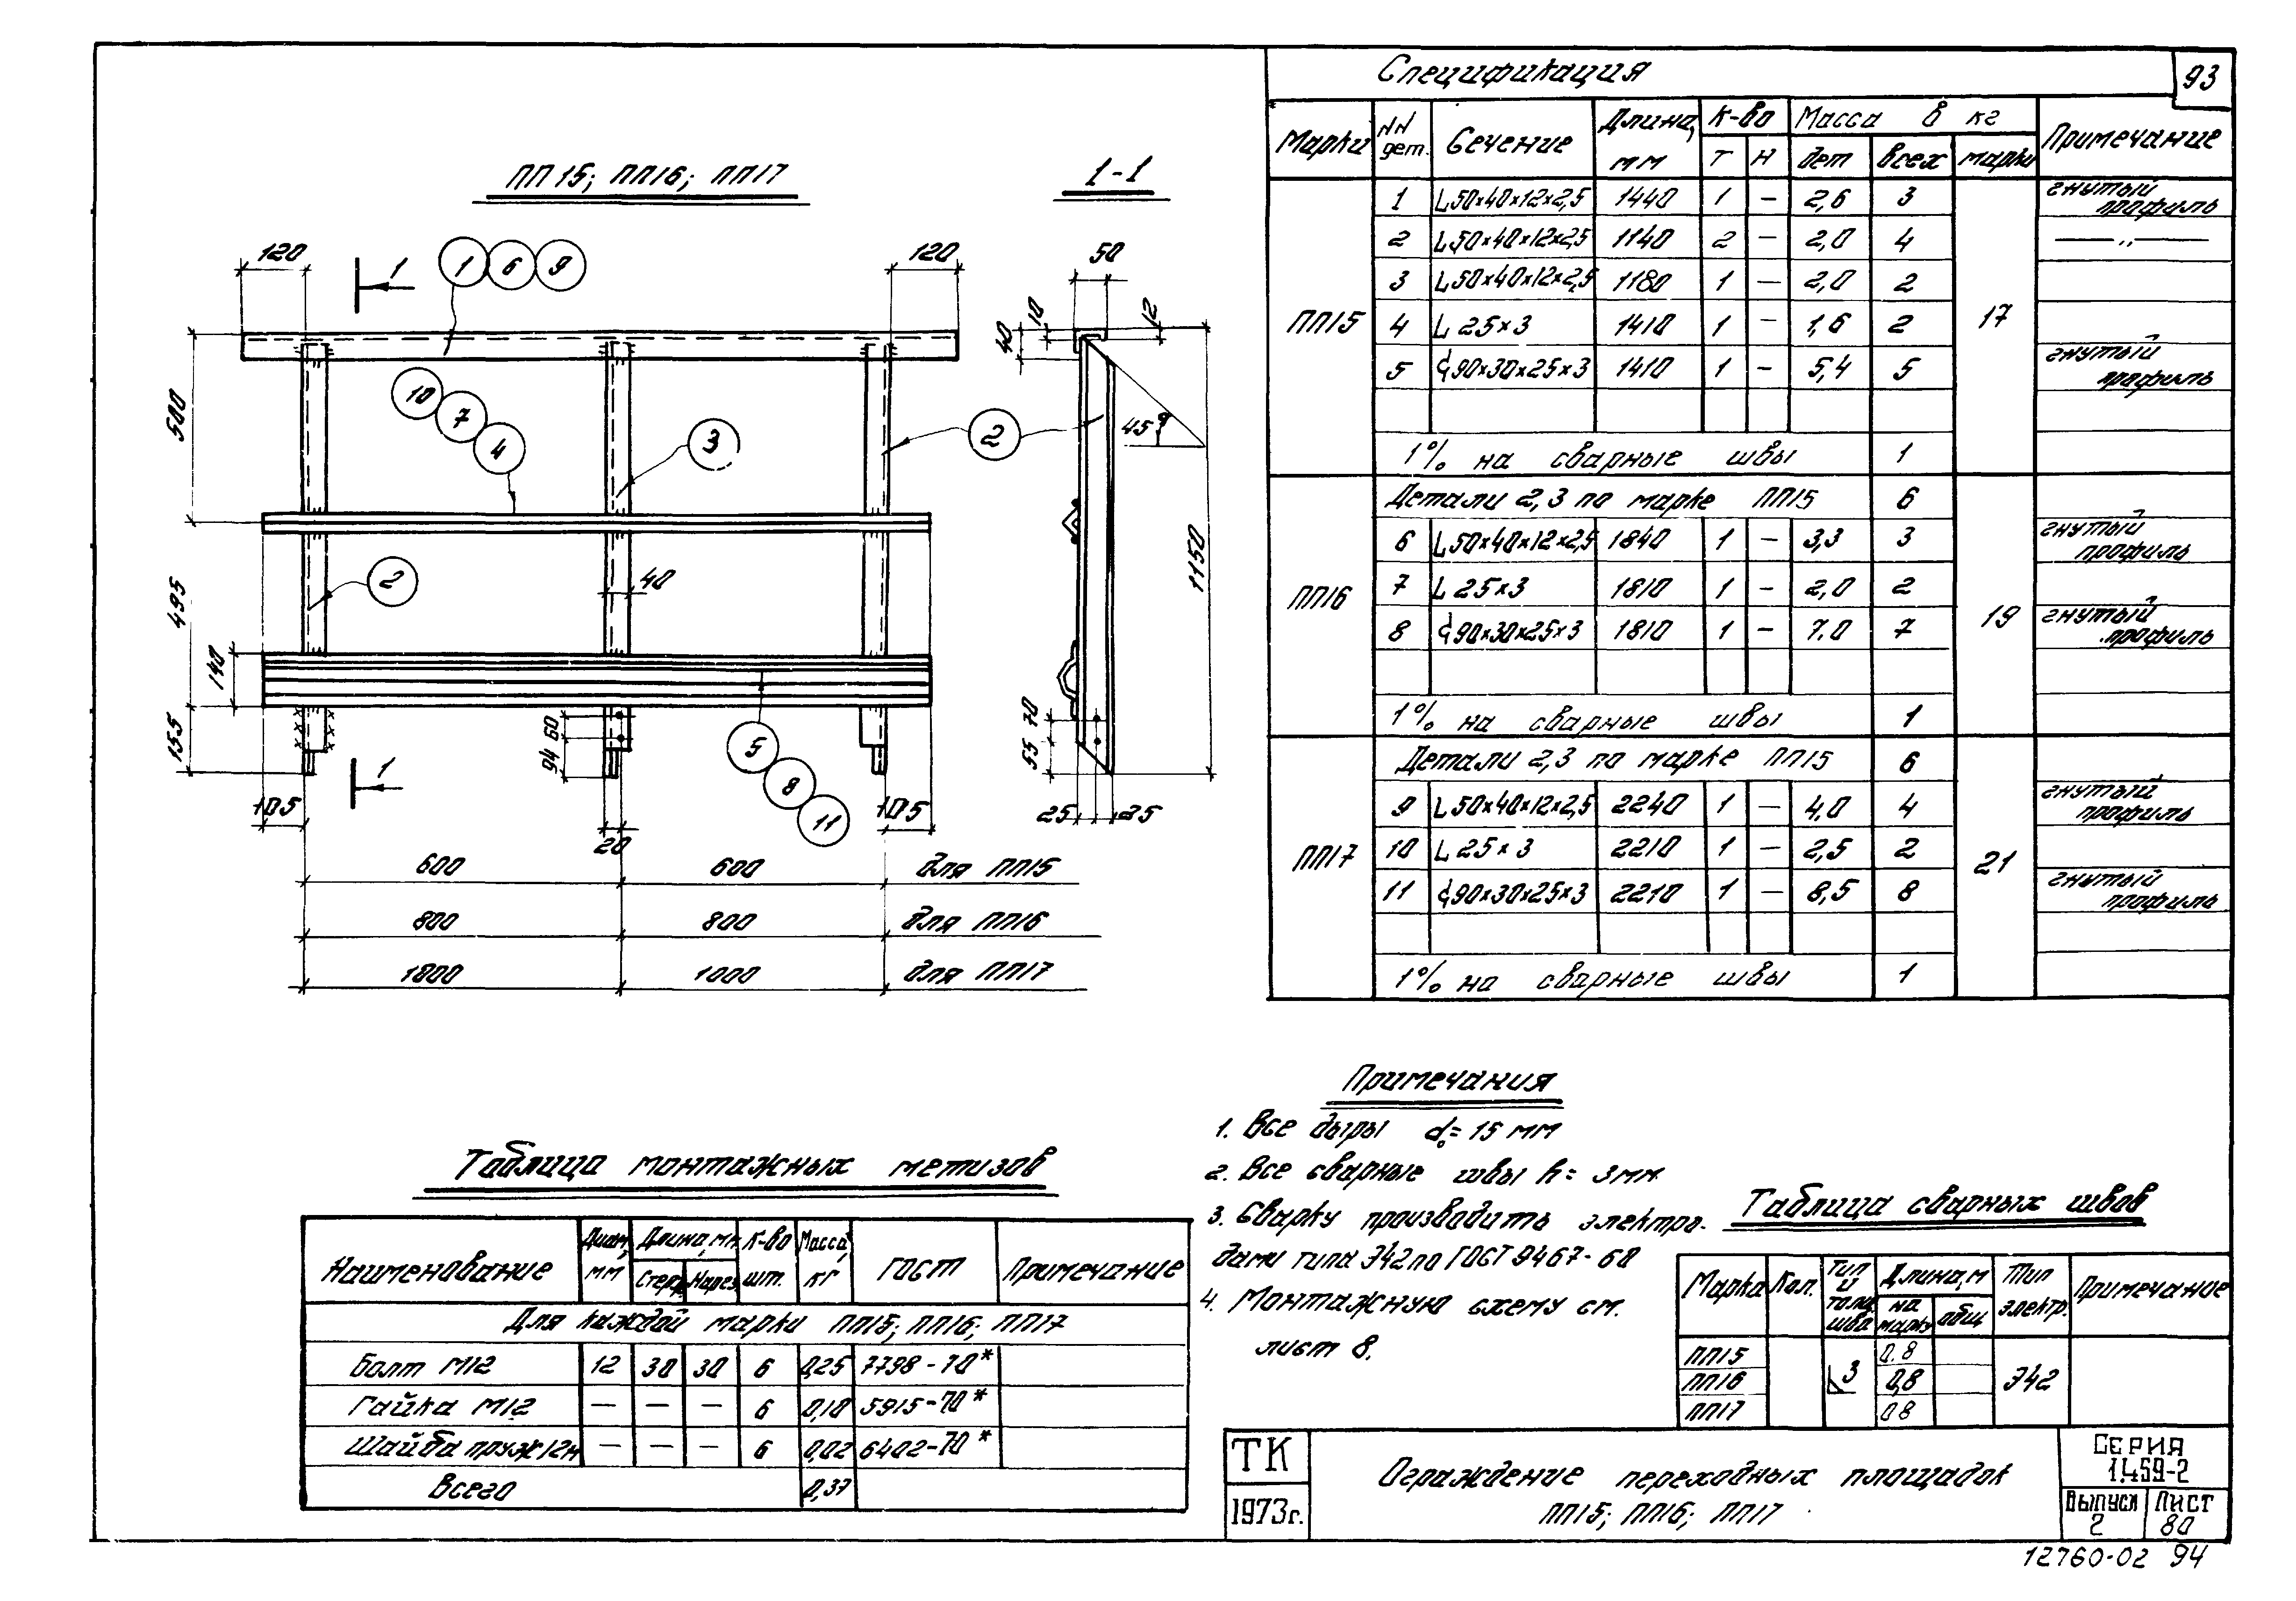 93
ПП15; ПП16; ПП17
1-1
120
1
1 6 9
120
50
10
40
12
500
10
7
4
3
2
45°
1150
2
40
495
140
155
60
94
5
8
11
70
55
1
105
105
20
25 25
600 600 для ПП15
800 800 для ПП16
1000 1000 для ПП17
Спецификация
Марки NN дет. Сечение Длина, мм К-во Масса в кг Примечание
Т Н дет всех марки
ПП15 17
1 L50×40×12×2,5 1440 1 — 2,6 3 гнутый профиль
2 L50×40×12×2,5 1140 2 — 2,0 4 —〃—
3 L50×40×12×2,5 1180 1 — 2,0 2
4 L 25×3 1410 1 — 1,6 2
5 90×30×25×3 1410 1 — 5,4 5 гнутый профиль
1% на сварные швы 1
ПП16 19
Детали 2,3 по марке ПП15 6
6 L50×40×12×2,5 1840 1 — 3,3 3 гнутый профиль
7 L 25×3 1810 1 — 2,0 2
8 90×30×25×3 1810 1 — 7.0 7 гнутый профиль
1% на сварные швы 1
ПП17 21
Детали 2,3 по марке ПП15 6
9 L50×40×12×2,5 2240 1 — 4,0 4 гнутый профиль
10 L 25×3 2210 1 — 2,5 2
11 90×30×25×3 2210 1 — 8,5 8 гнутый профиль
1% на сварные швы 1
Примечания
1. Все дыры d₀= 15 мм
2. Все сварные швы h= 3мм
3. Сварку производить электро-
дами типа Э42 по ГОСТ 9467-60
4. Монтажную схему см.
лист 8.
Таблица монтажных метизов
Наименование Диам, мм Длина, мм К-во шт. Масса, кг ГОСТ Примечание
Стерж. Нарез.
Для каждой марки ПП15; ПП16; ПП17
Болт М12 12 30 30 6 0,25 7798-70*
Гайка М12 — — — 6 0,10 5915-70*
Шайба пруж 12н — — — 6 0,02 6402-70*
Всего 0,37
Таблица сварных швов
Марка Кол. Тип и толщ. шва Длина, м Тип электр. Примечание
на марку общ
ПП15 0.8
ПП16 3 0,8 Э42
ПП17 0.8
ТК
1973г.
Ограждение переходных площадок
ПП15; ПП16; ПП17
СЕРИЯ
1.459-2
Выпуск 2
Лист 80
12760-02 94